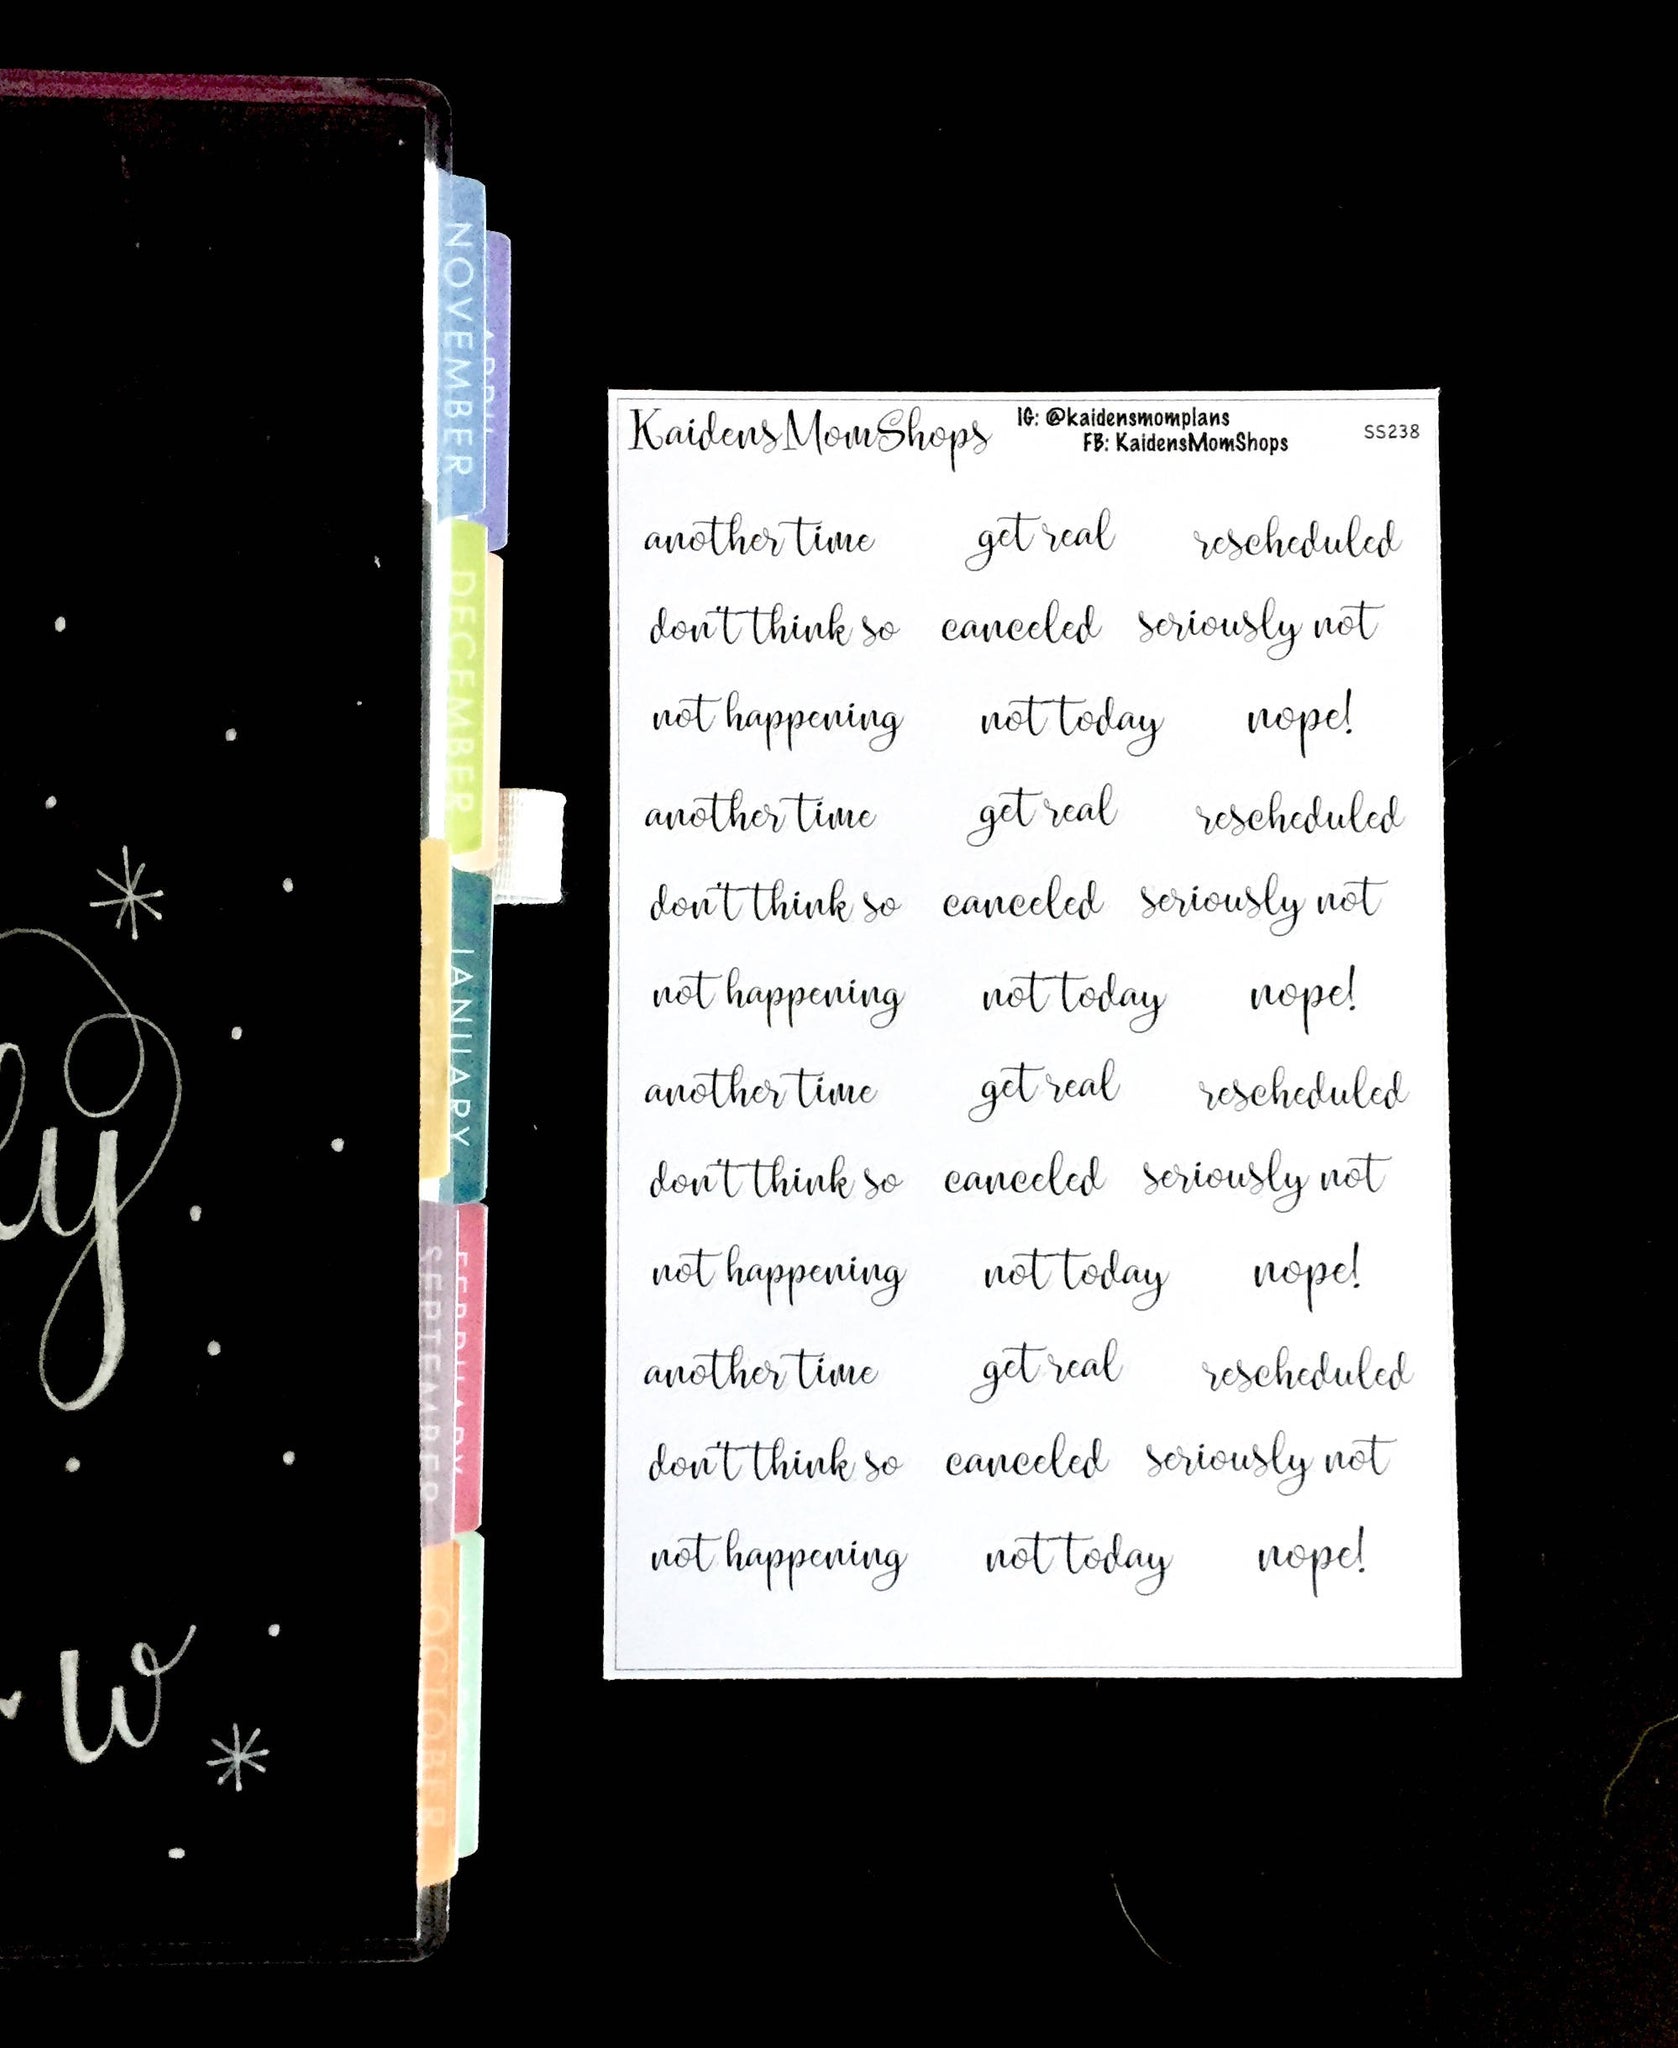 NOVEMBER
APRIL
DECEMBER
JANUARY
FEBRUARY
SEPTEMBER
OCTOBER
y
w
KaidensMomShops IG: @kaidensmomplans
FB: KaidensMomShops
SS238
another time get real rescheduled
don't think so canceled seriously not
not happening not today nope!
another time get real rescheduled
don't think so canceled seriously not
not happening not today nope!
another time get real rescheduled
don't think so canceled seriously not
not happening not today nope!
another time get real rescheduled
don't think so canceled seriously not
not happening not today nope!